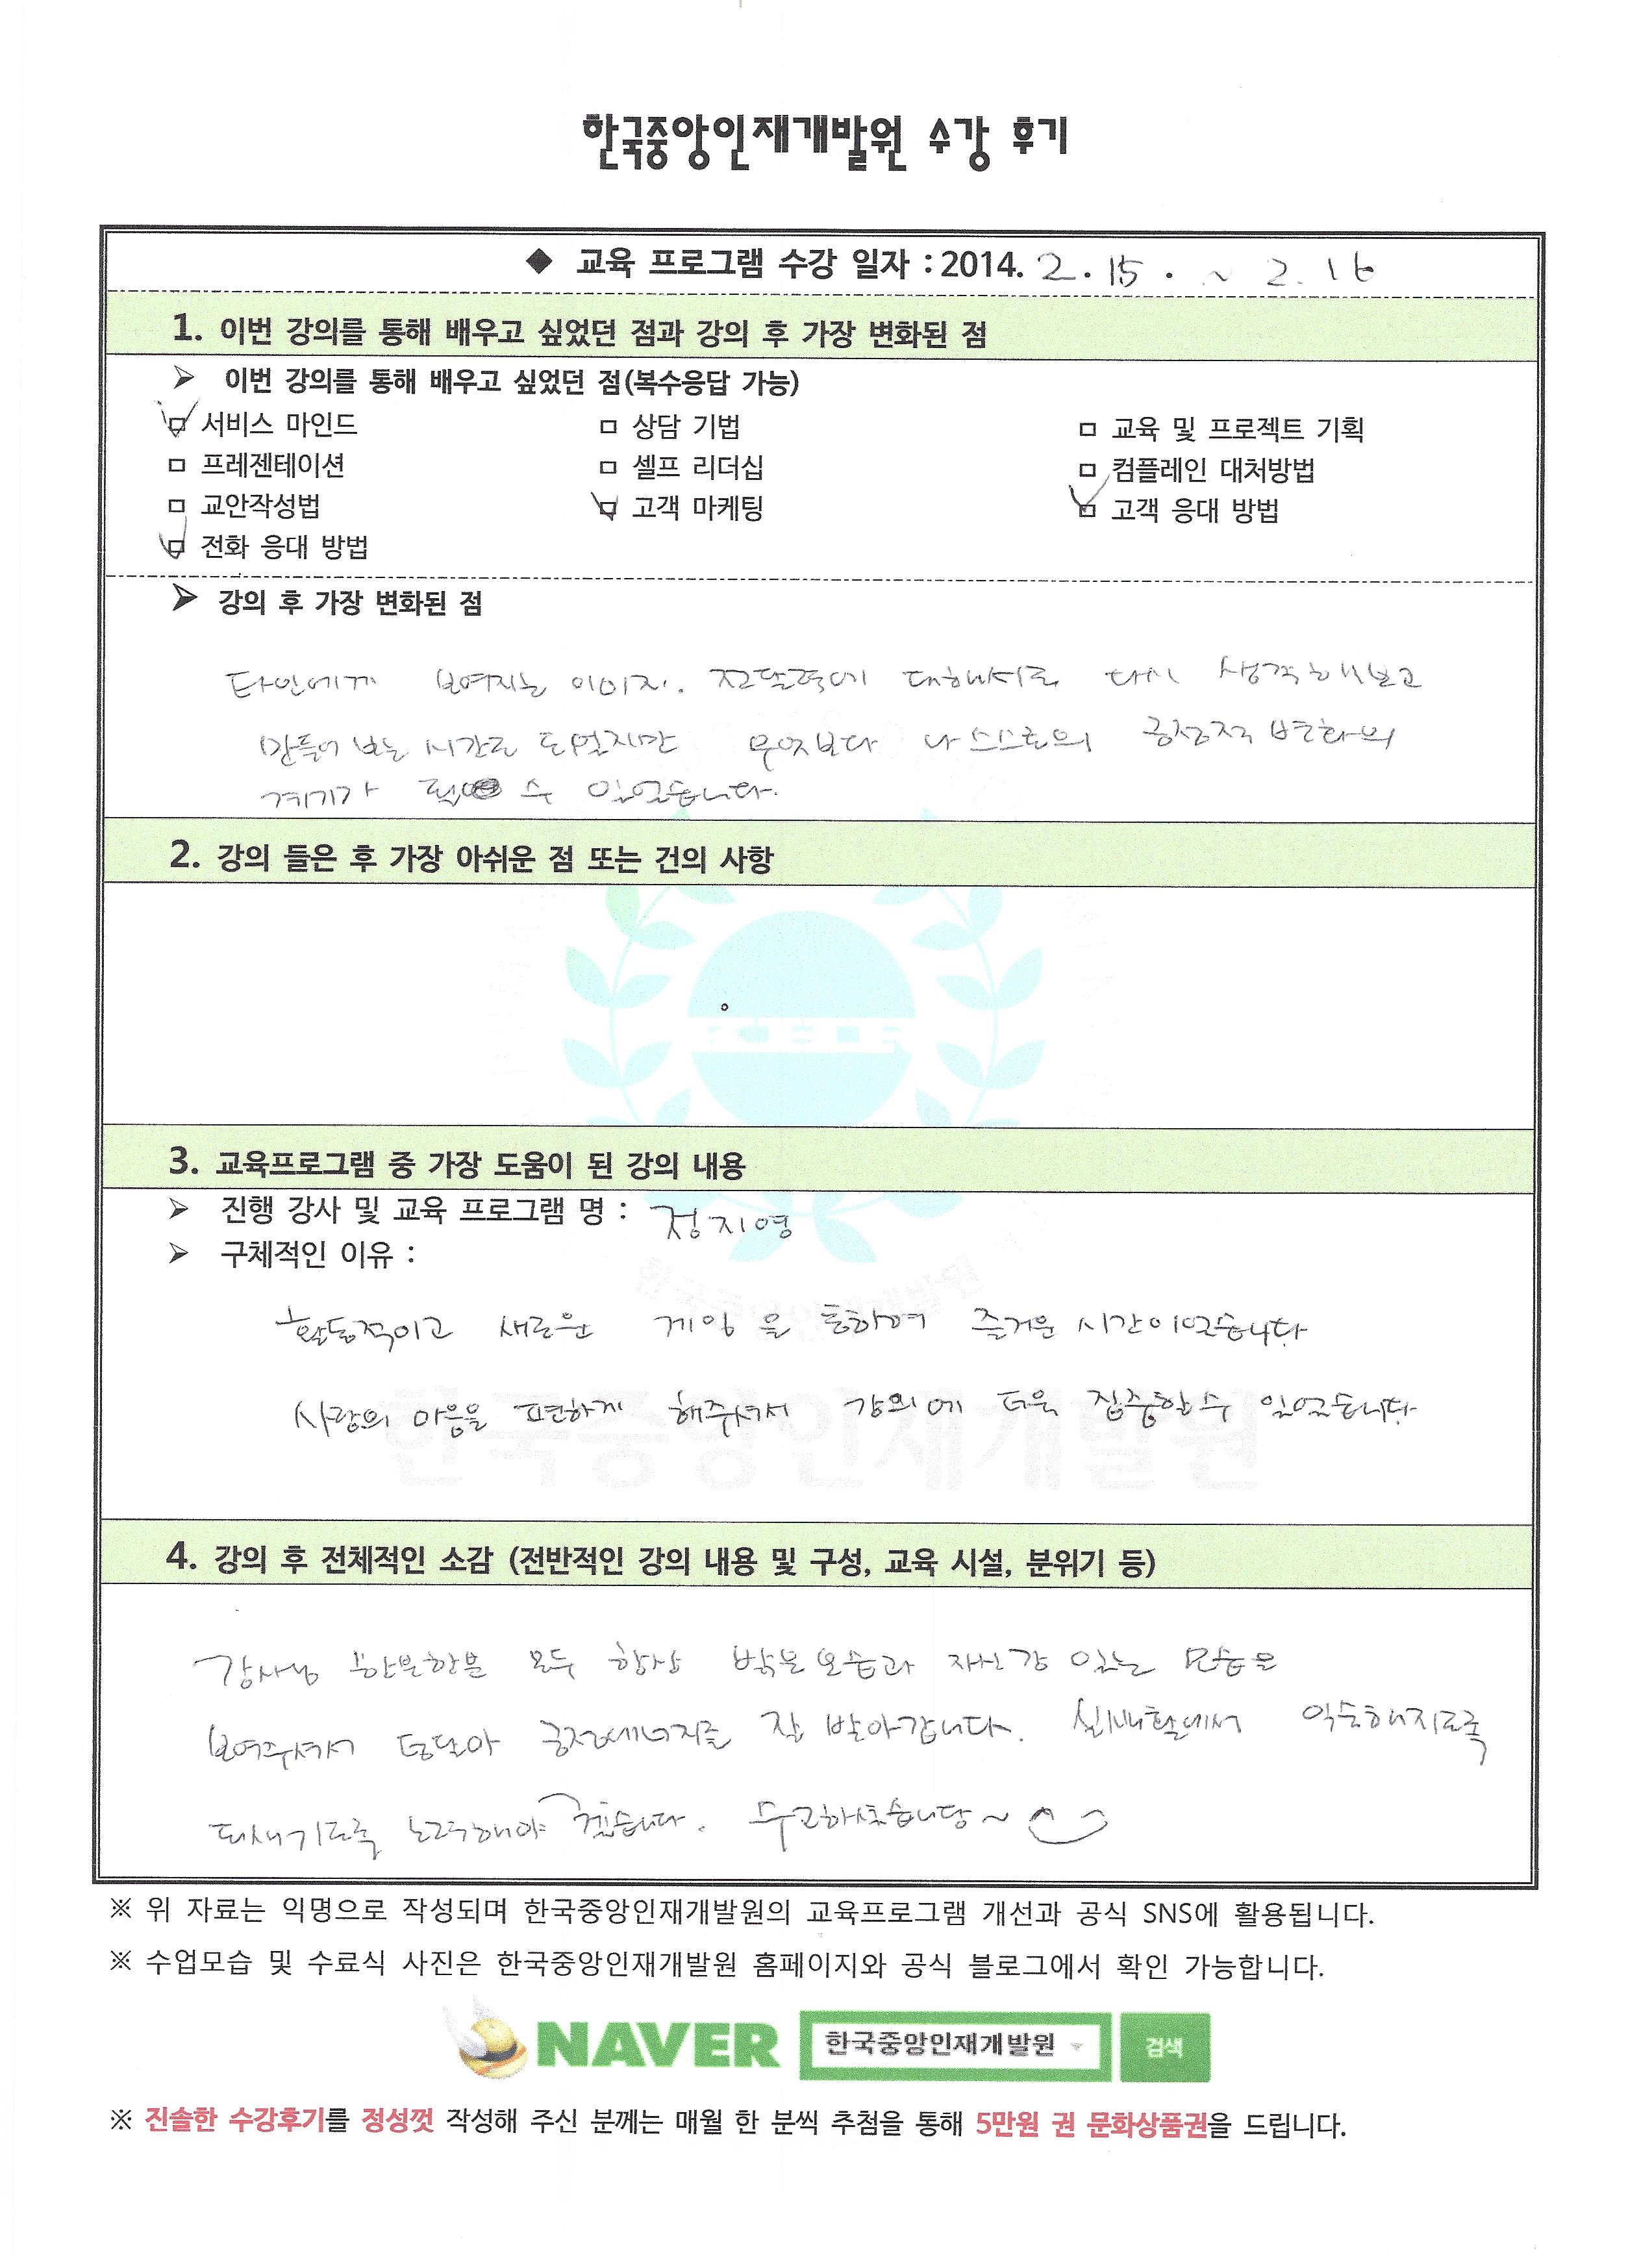 한국중앙인재개발원 수강 후기
◆ 교육 프로그램 수강 일자 : 2014. 2. 15. ~ 2. 16
1. 이번 강의를 통해 배우고 싶었던 점과 강의 후 가장 변화된 점
➢ 이번 강의를 통해 배우고 싶었던 점(복수응답 가능)
☑ 서비스 마인드 □ 상담 기법 □ 교육 및 프로젝트 기획
□ 프레젠테이션 □ 셀프 리더십 □ 컴플레인 대처방법
□ 교안작성법 ☑ 고객 마케팅 ☑ 고객 응대 방법
☑ 전화 응대 방법
➢ 강의 후 가장 변화된 점
타인에게 보여지는 이미지. 전달력에 대해서도 다시 생각해보고
만들어 보는 시간도 되었지만 무엇보다 나 스스로의 긍정적 변화의
계기가 될 수 있었습니다.
2. 강의 들은 후 가장 아쉬운 점 또는 건의 사항
KHCR
3. 교육프로그램 중 가장 도움이 된 강의 내용
➢ 진행 강사 및 교육 프로그램 명 : 정지영
➢ 구체적인 이유 :
한국중앙인재개발원
활동적이고 새로운 게임을 통하여 즐거운 시간이였습니다
사람의 마음을 편하게 해주셔서 강의에 더욱 집중할 수 있었습니다
한국중앙인재개발원
4. 강의 후 전체적인 소감 (전반적인 강의 내용 및 구성, 교육 시설, 분위기 등)
강사님 한분한분 모두 항상 밝은 모습과 자신감 있는 모습을
보여주셔서 덩달아 긍정에너지를 잘 받아갑니다. 실생활에서 익숙해지도록
되새기도록 노력해야 겠습니다. 수고하셨습니당~
※ 위 자료는 익명으로 작성되며 한국중앙인재개발원의 교육프로그램 개선과 공식 SNS에 활용됩니다.
※ 수업모습 및 수료식 사진은 한국중앙인재개발원 홈페이지와 공식 블로그에서 확인 가능합니다.
NAVER 한국중앙인재개발원 검색
※ 진솔한 수강후기를 정성껏 작성해 주신 분께는 매월 한 분씩 추첨을 통해 5만원 권 문화상품권을 드립니다.